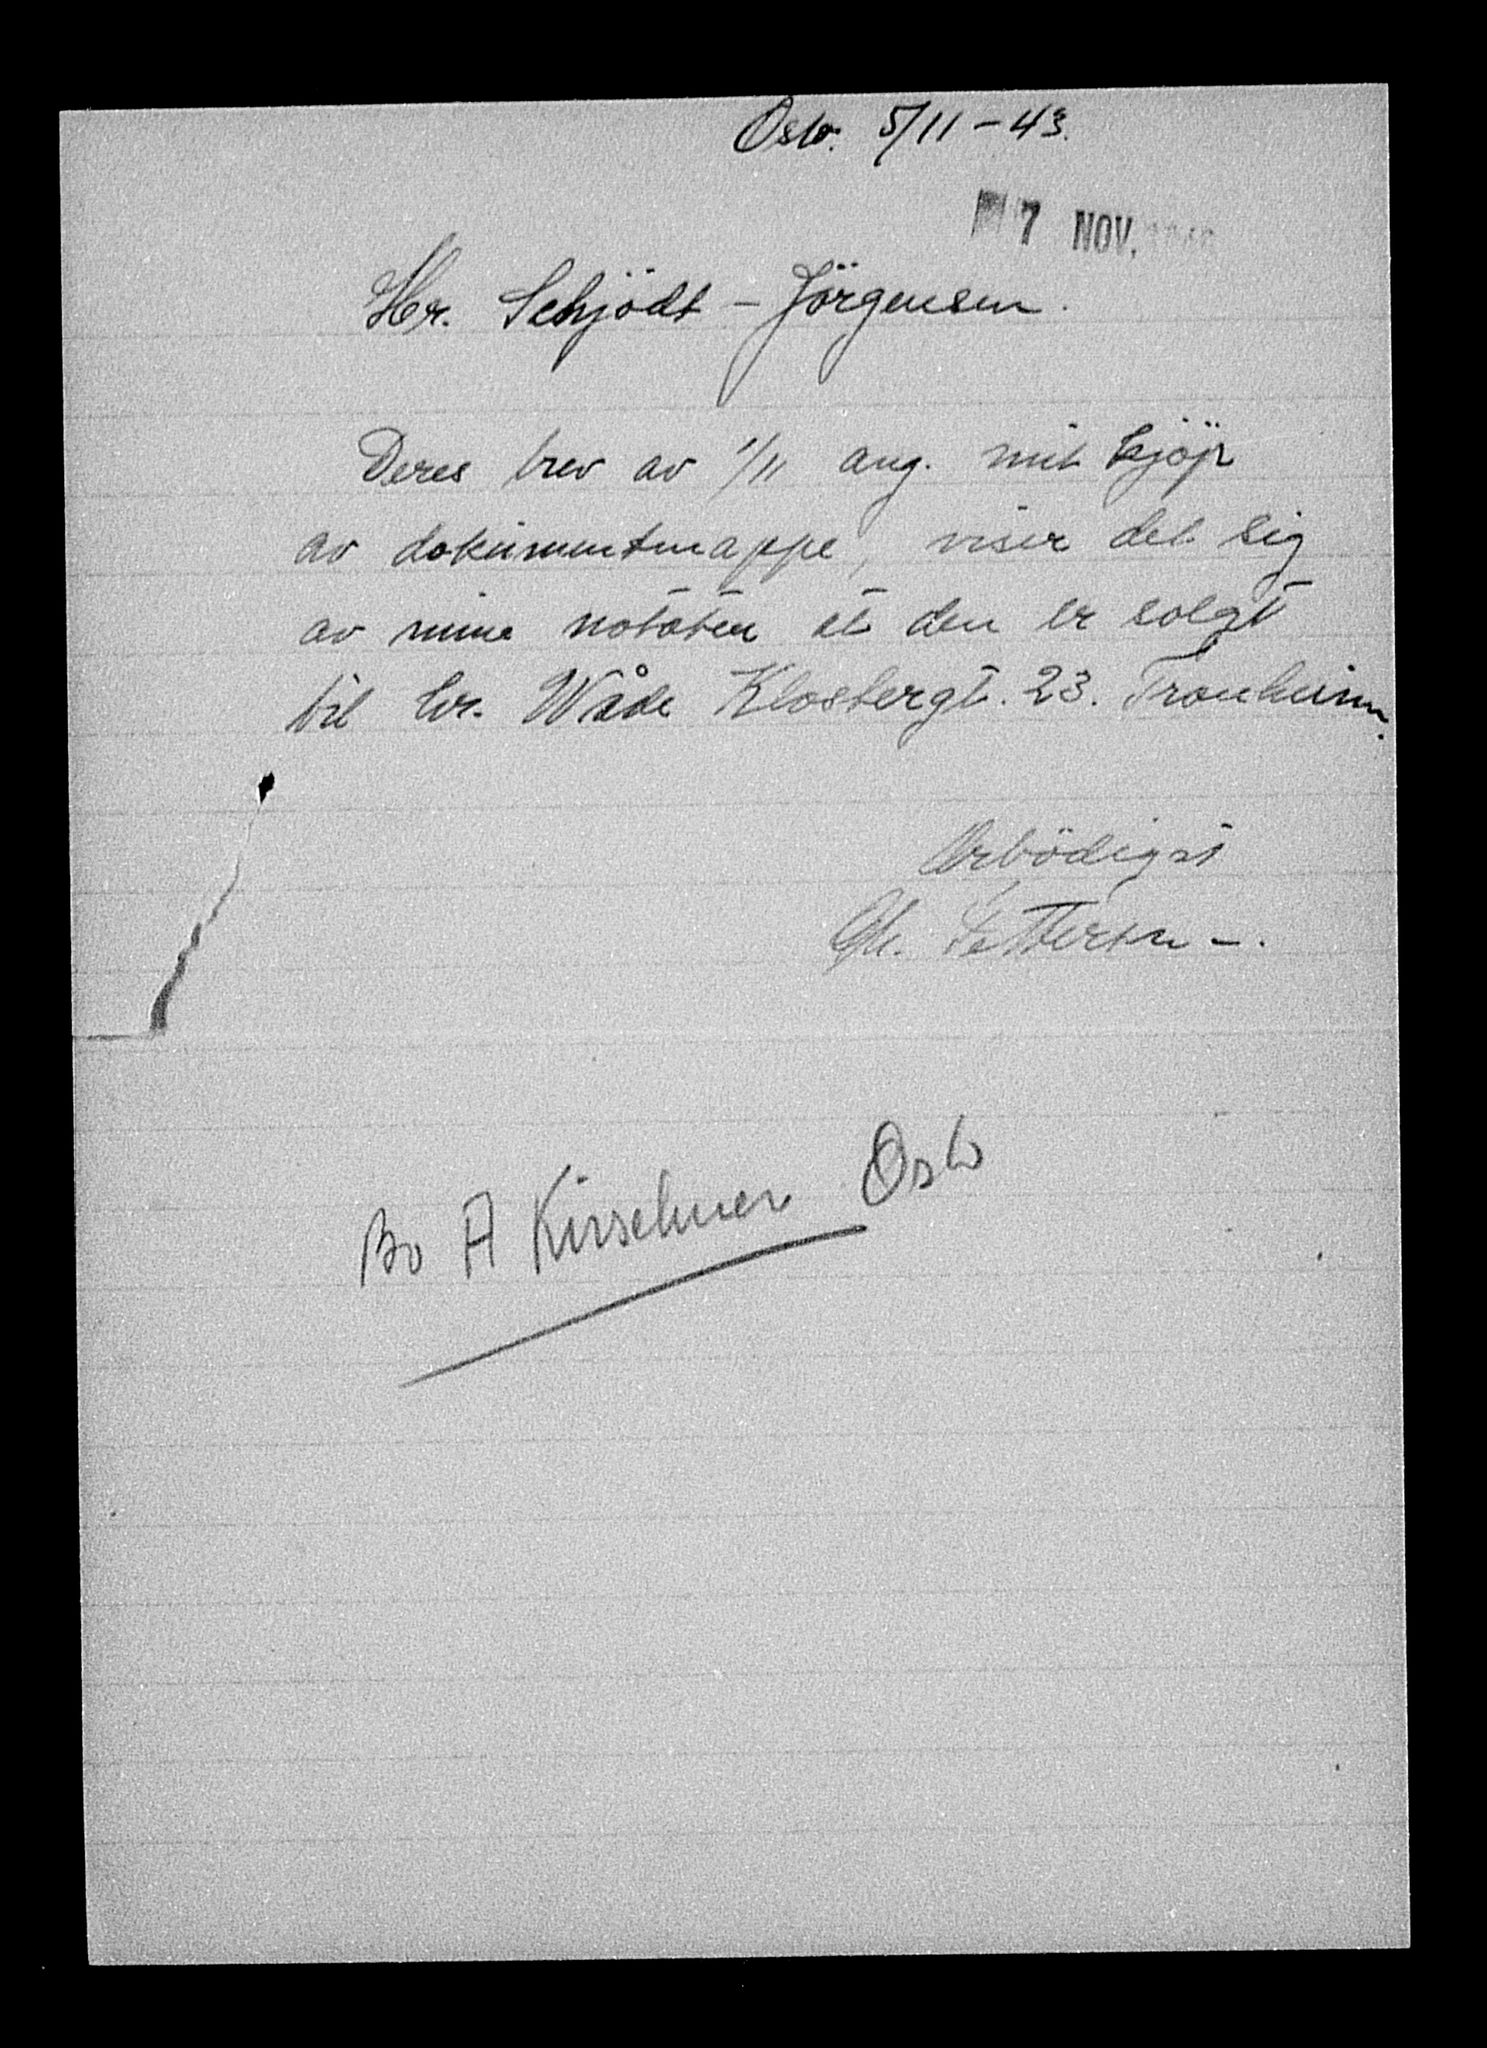 Oslo. 5/11 - 43.
7 NOV.
Hr. Schjödt - Jörgensen.
Deres brev av 1/11 ang. mit kjöp
av dokumentmappe, viser det sig
av mine notater at den er solgt
til hr. Wåde Klostergt. 23. Tronheim.
Ærbödigst
Chr. Pettersen -.
Bo A Kirschner Oslo